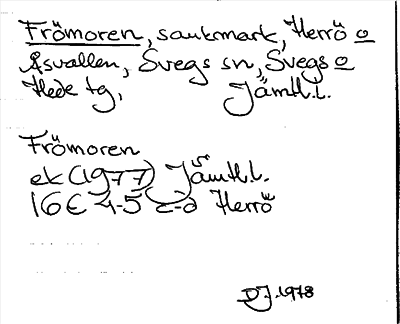 Frömoren, sankmark, Herrö o
Åsvallen, Svegs sn, Svegs o
Hede tg, Jämtl.l.
Frömoren
ek (1977) Jämtl.l.
16E 4-5 c-d Herrö
DJ. 1978